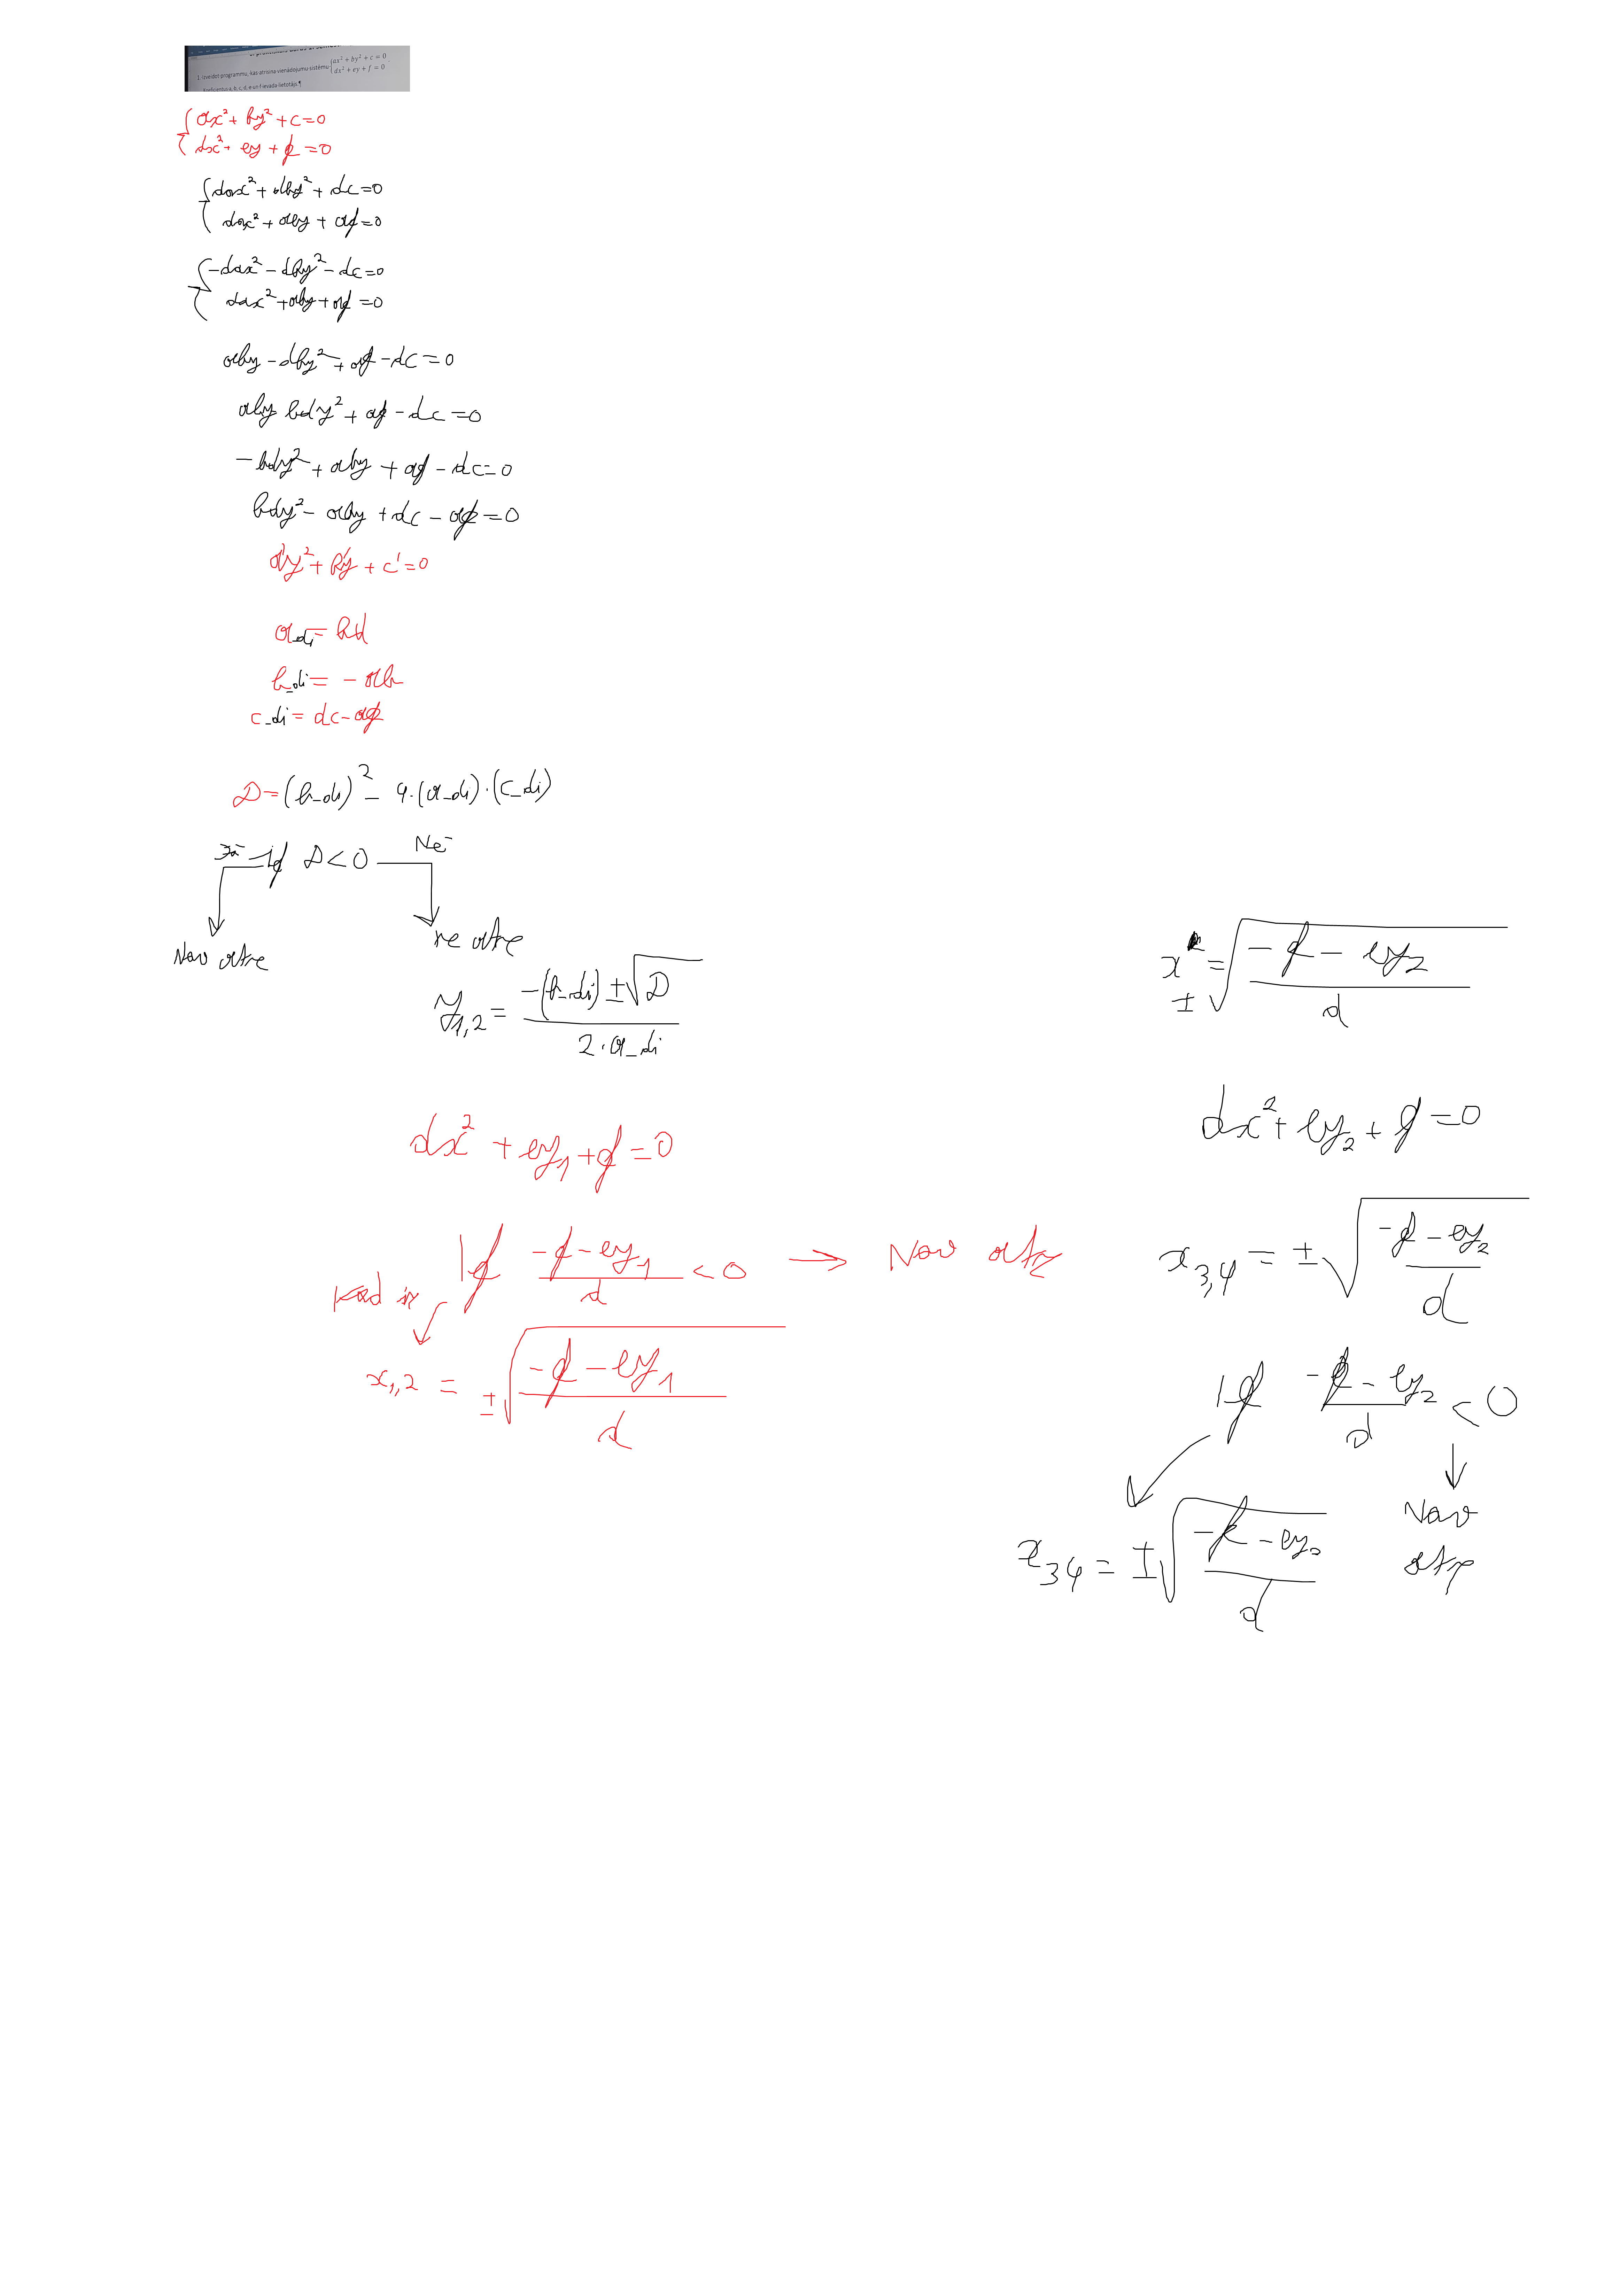 1. Izveidot programmu, kas atrisina vienādojumu sistēmu {ax² + by² + c = 0
dx² + ey + f = 0
koeficientus a, b, c, d, e un f ievada lietotājs.¶
{ax² + by² + c = 0
dx² + ey + f = 0
{dax² + dby² + dc = 0
dax² + aey + af = 0
{-dax² - dby² - dc = 0
dax² + aby + af = 0
aby - dby² + af - dc = 0
aby bdy² + af - dc = 0
-bdy² + aby + af - dc = 0
bdy² - aby + dc - af = 0
a'y² + b'y + c' = 0
a_di = bd
b_di = - ab
c_di = dc - af
D = (b_di)² - 4·(a_di)·(c_di)
Jā if D < 0 Nē
Nav atre
ir atre
y1,2 = (-(b_di) ± √D) / (2·a_di)
dx² + ey1 + f = 0
If (-f - ey1)/d < 0 → Nav atr
Kad ir
x1,2 = ±√((-f - ey1)/d)
x = ±√((-f - ey2)/d)
dx² + ey2 + f = 0
x3,4 = ±√((-f - ey2)/d)
If (-f - ey2)/d < 0
Nav
atr
x34 = ±√((-f - ey2)/d)